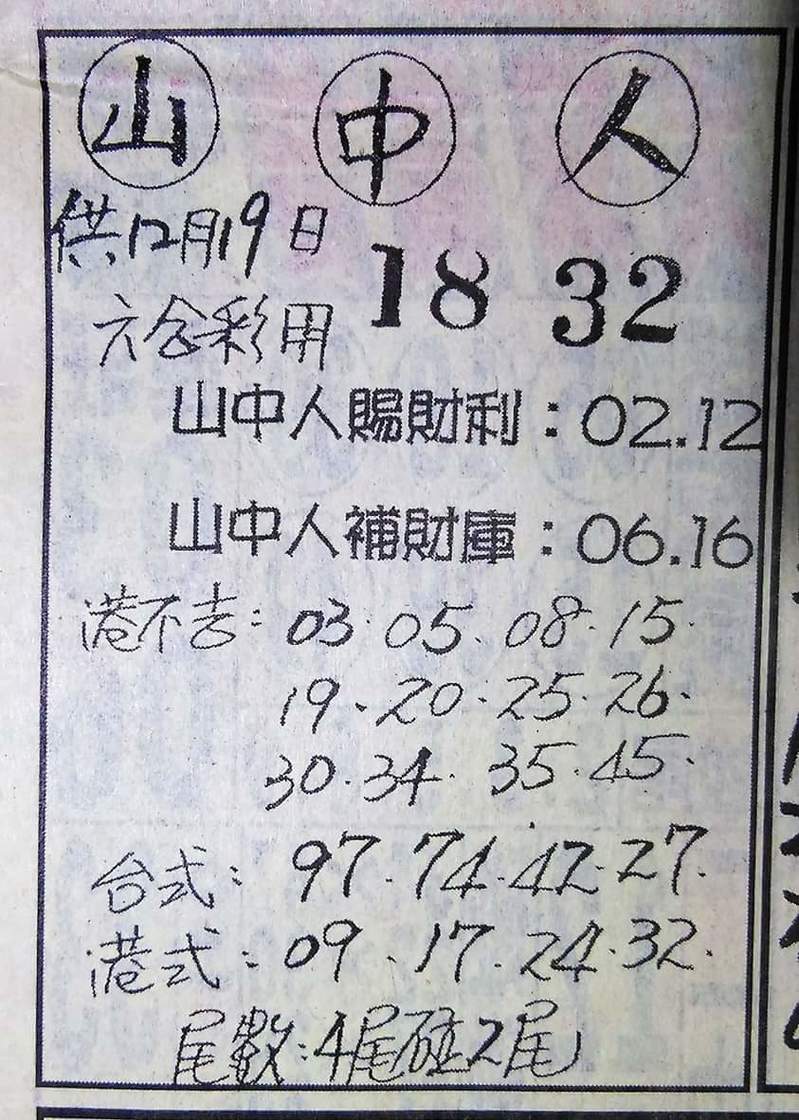 山 中 人
供12月19日
18 32
六合彩用
山中人賜財利:02.12
山中人補財庫:06.16
港不去:03.05.08.15.
19.20.25.26.
30.34.35.45.
台式:97.74.42.27.
港式:09.17.24.32.
尾數:4尾碰2尾